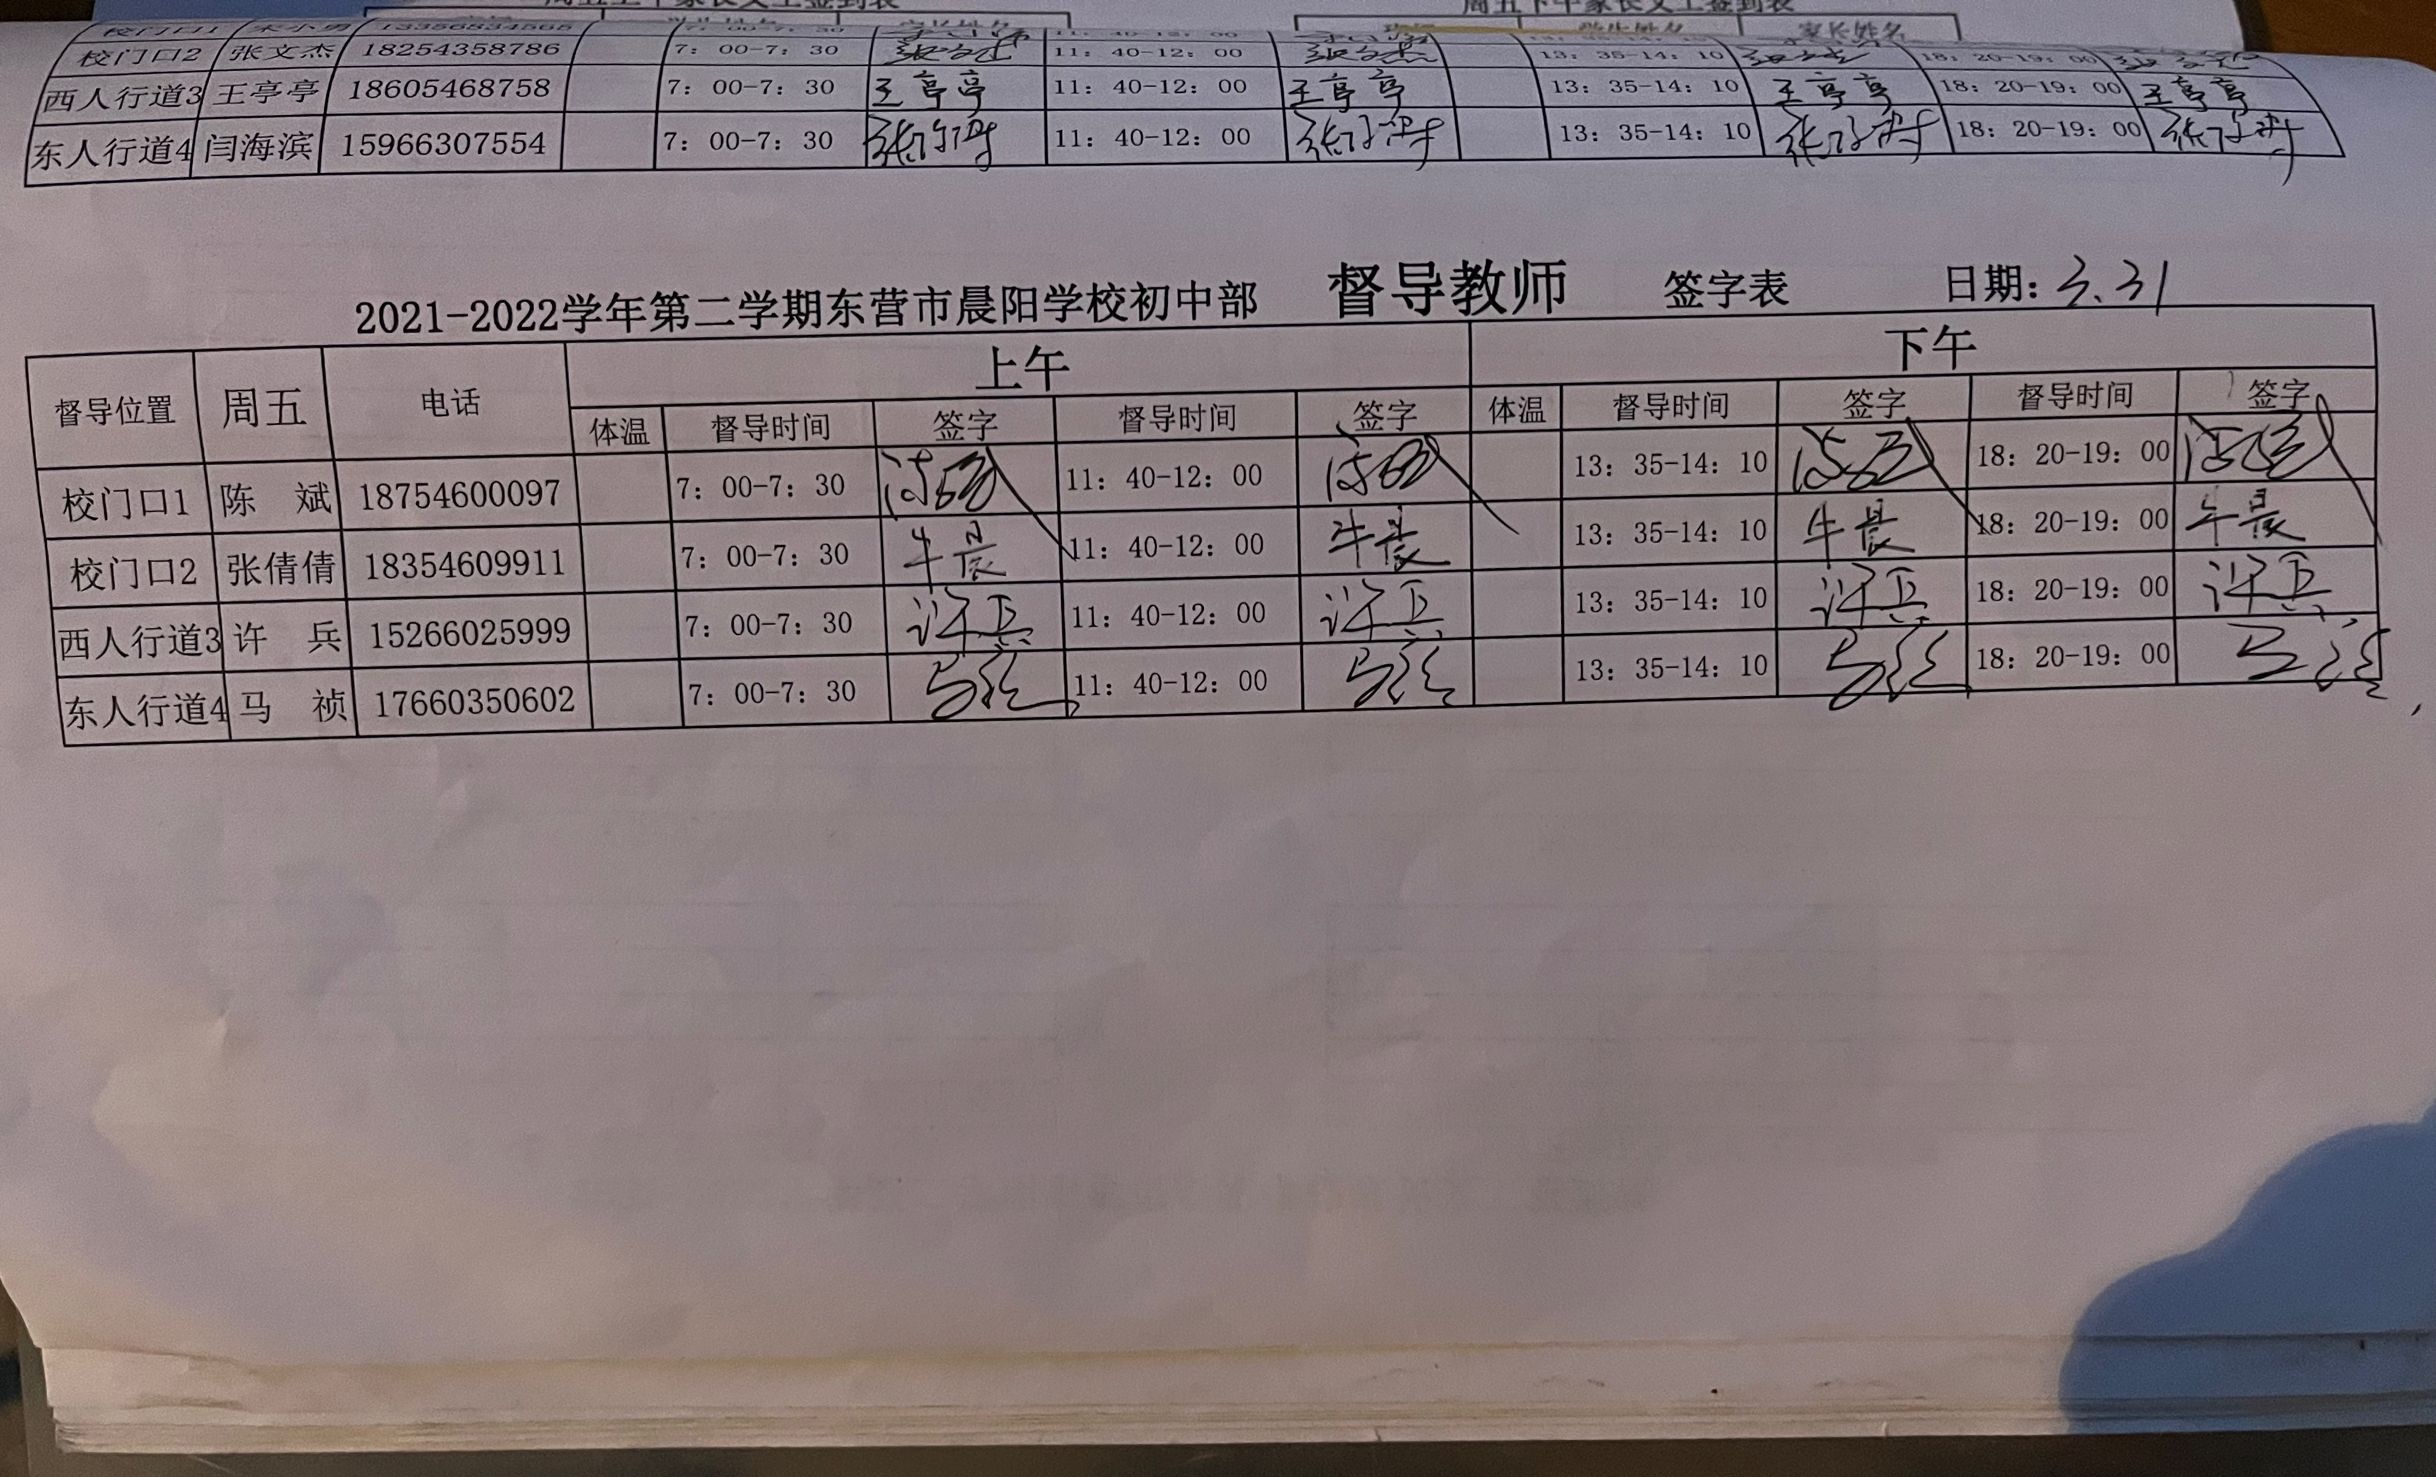 校门口2 张文杰 18254358786 7：00-7：30 11：40-12：00 13：35-14：10 18：20-19：00
西人行道3 王亭亭 18605468758 7：00-7：30 王亭亭 11：40-12：00 王亭亭 13：35-14：10 王亭亭 18：20-19：00 王亭亭
东人行道4 闫海滨 15966307554 7：00-7：30 11：40-12：00 13：35-14：10 18：20-19：00
2021-2022学年第二学期东营市晨阳学校初中部 督导教师 签字表 日期：3.31
督导位置 周五 电话 上午 下午
体温 督导时间 签字 督导时间 签字 体温 督导时间 签字 督导时间 签字
校门口1 陈 斌 18754600097 7：00-7：30 11：40-12：00 13：35-14：10 18：20-19：00
校门口2 张倩倩 18354609911 7：00-7：30 牛晨 11：40-12：00 牛晨 13：35-14：10 牛晨 18：20-19：00 牛晨
西人行道3 许 兵 15266025999 7：00-7：30 许兵 11：40-12：00 许兵 13：35-14：10 许兵 18：20-19：00 许兵
东人行道4 马 祯 17660350602 7：00-7：30 马祯 11：40-12：00 马祯 13：35-14：10 马祯 18：20-19：00 马祯